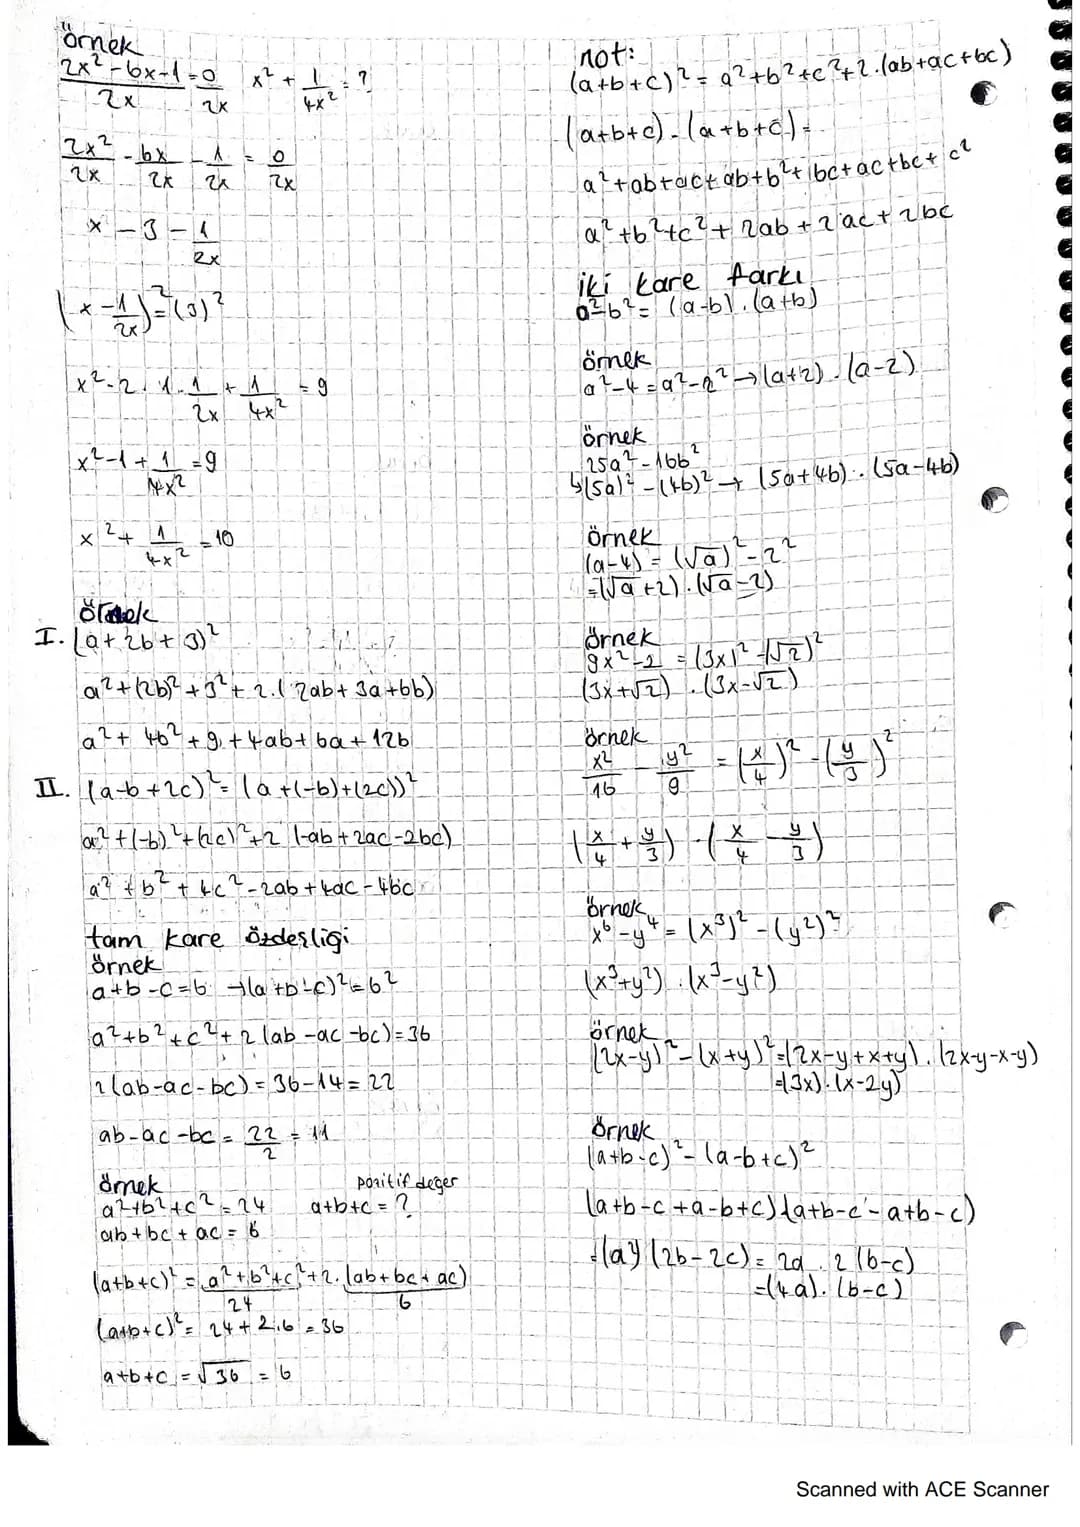 örnek
2x² - 6x - 1 / 2x = 0 / 2x   x² + 1/4x² = ?
2x²/2x - 6x/2x - 1/2x = 0/2x
x - 3 - 1/2x
(x - 1/2x)² = (3)²
x² - 2 . 1 . 1/2x + 1/4x² = 9
x² - 1 + 1/4x² = 9
x² + 1/4x² = 10
örnek
I. (a + 2b + 3)²
a² + (2b)² + 3² + 2 . (2ab + 3a + 6b)
a² + 4b² + 9 + 4ab + 6a + 12b
II. (a-b+2c)² = (a+(-b)+(2c))²
a² + (-b)² + (2c)² + 2 (-ab + 2ac - 2bc)
a² + b² + 4c² - 2ab + 4ac - 4bc
tam kare özdeşligi
örnek
a+b-c=6 → (a+b-c)² = 6²
a² + b² + c² + 2 (ab - ac - bc) = 36
2 (ab - ac - bc) = 36 - 14 = 22
ab - ac - bc = 22/2 = 11
örnek pozitif deger
a² + b² + c² = 24   a+b+c = ?
ab + bc + ac = 6
(a+b+c)² = a² + b² + c² + 2 . (ab + bc + ac)
24 6
(a+b+c)² = 24 + 2.6 = 36
a+b+c = √36 = 6
not:
(a+b+c)² = a² + b² + c² + 2 . (ab + ac + bc)
(a+b+c) . (a+b+c) =
a² + ab + ac + ab + b² + bc + ac + bc + c²
a² + b² + c² + 2ab + 2ac + 2bc
iki kare farkı
a² - b² = (a-b) . (a+b)
örnek
a² - 4 = a² - 2² → (a+2) . (a-2)
örnek
25a² - 16b²
↳ (5a)² - (4b)² → (5a+4b) . (5a-4b)
örnek
(a-4) = (√a)² - 2²
= (√a + 2) . (√a - 2)
örnek
9x² - 2 = (3x)² - (√2)²
(3x+√2) . (3x-√2)
örnek
x²/16 - y²/9 = (x/4)² - (y/3)²
(x/4 + y/3) - (x/4 - y/3)
örnek
x⁶ - y⁴ = (x³)² - (y²)²
(x³+y²) . (x³-y²)
örnek
(2x-y)² - (x+y)² = (2x-y+x+y) . (2x-y-x-y)
= (3x) . (x-2y)
örnek
(a+b-c)² - (a-b+c)²
(a+b-c+a-b+c) (a+b-c-a+b-c)
= (a) (2b-2c) = 2a . 2 (b-c)
= (4a) . (b-c)
Scanned with ACE Scanner